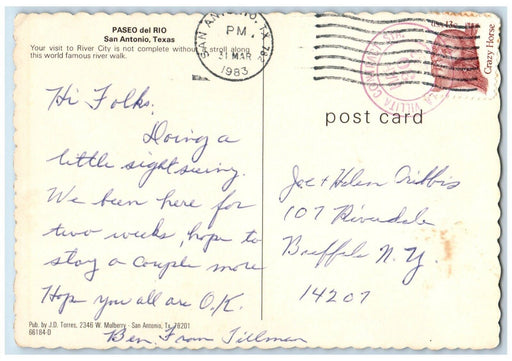 PASEO del RIO
San Antonio, Texas
Your visit to River City is not complete without a stroll along
this world famous river walk.
SAN ANTONIO, TX 782
PM
31 MAR
1983
LA VILLITA
USA 13c
Crazy Horse
post card
Hi Folks,
Doing a
little sightseeing.
We been here for
two weeks, hope to
stay a couple more
Hope you all are O.K.
Ben, Fran Tillman
Joe + Helen
107 Riverdale
Buffalo N.Y.
14207
Pub. by J.D. Torres, 2346 W. Mulberry - San Antonio, Tx. 78201
66184-D